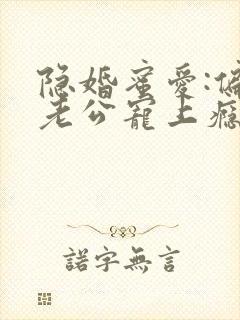 隐婚蜜爱:偏
老公宠上瘾
諾字無言